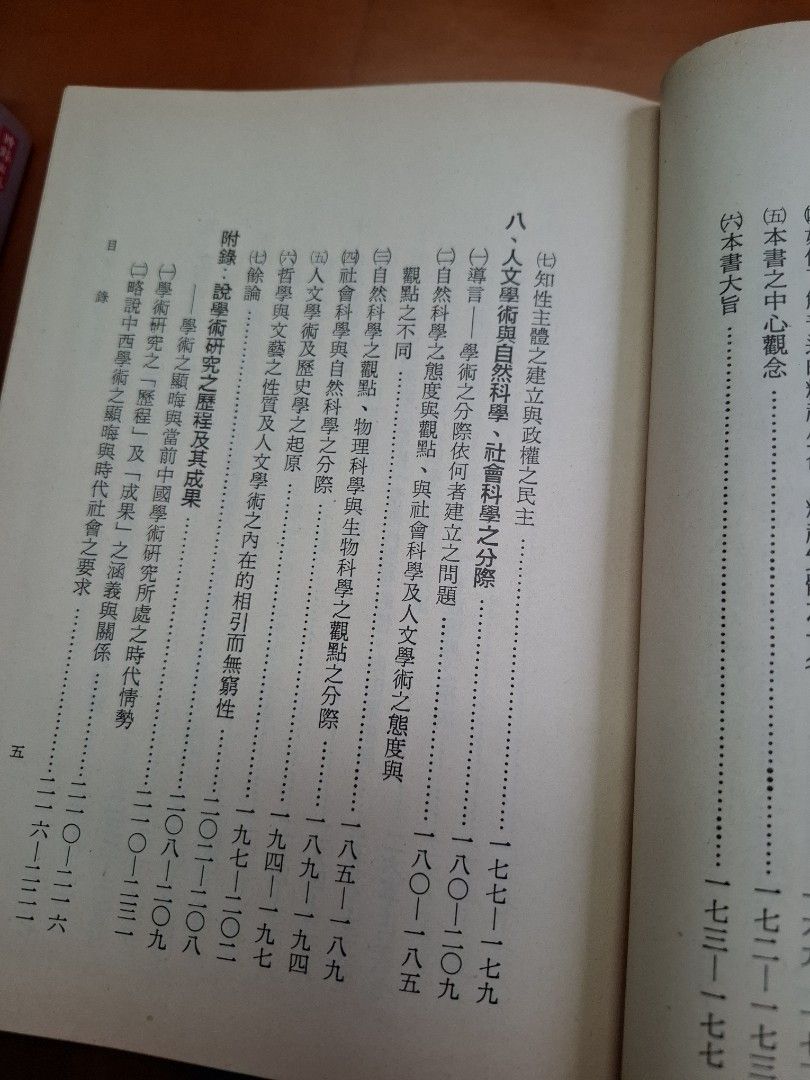 ㈤本書之中心觀念……一七二—一七三
㈥本書大旨……一七三—一七七
㈦知性主體之建立與政權之民主……一七七—一七九
八、人文學術與自然科學、社會科學之分際……一八〇—二〇九
㈠導言——學術之分際依何者建立之問題……一八〇—一八五
㈡自然科學之態度與觀點、與社會科學及人文學術之態度與
觀點之不同……一八五—一八九
㈢自然科學之觀點、物理科學與生物科學之觀點之分際……一八九—一九四
㈣社會科學與自然科學之分際……一九四—一九七
㈤人文學術及歷史學之起原……一九七—二〇二
㈥哲學與文藝之性質及人文學術之內在的相引而無窮性……二〇二—二〇八
㈦餘論……二〇八—二〇九
附錄：說學術研究之歷程及其成果……二一〇—二三一
——學術之顯晦與當前中國學術研究所處之時代情勢
㈠學術研究之「歷程」及「成果」之涵義與關係……二一〇—二一六
㈡略說中西學術之顯晦與時代社會之要求……二一六—二二一
目錄
五